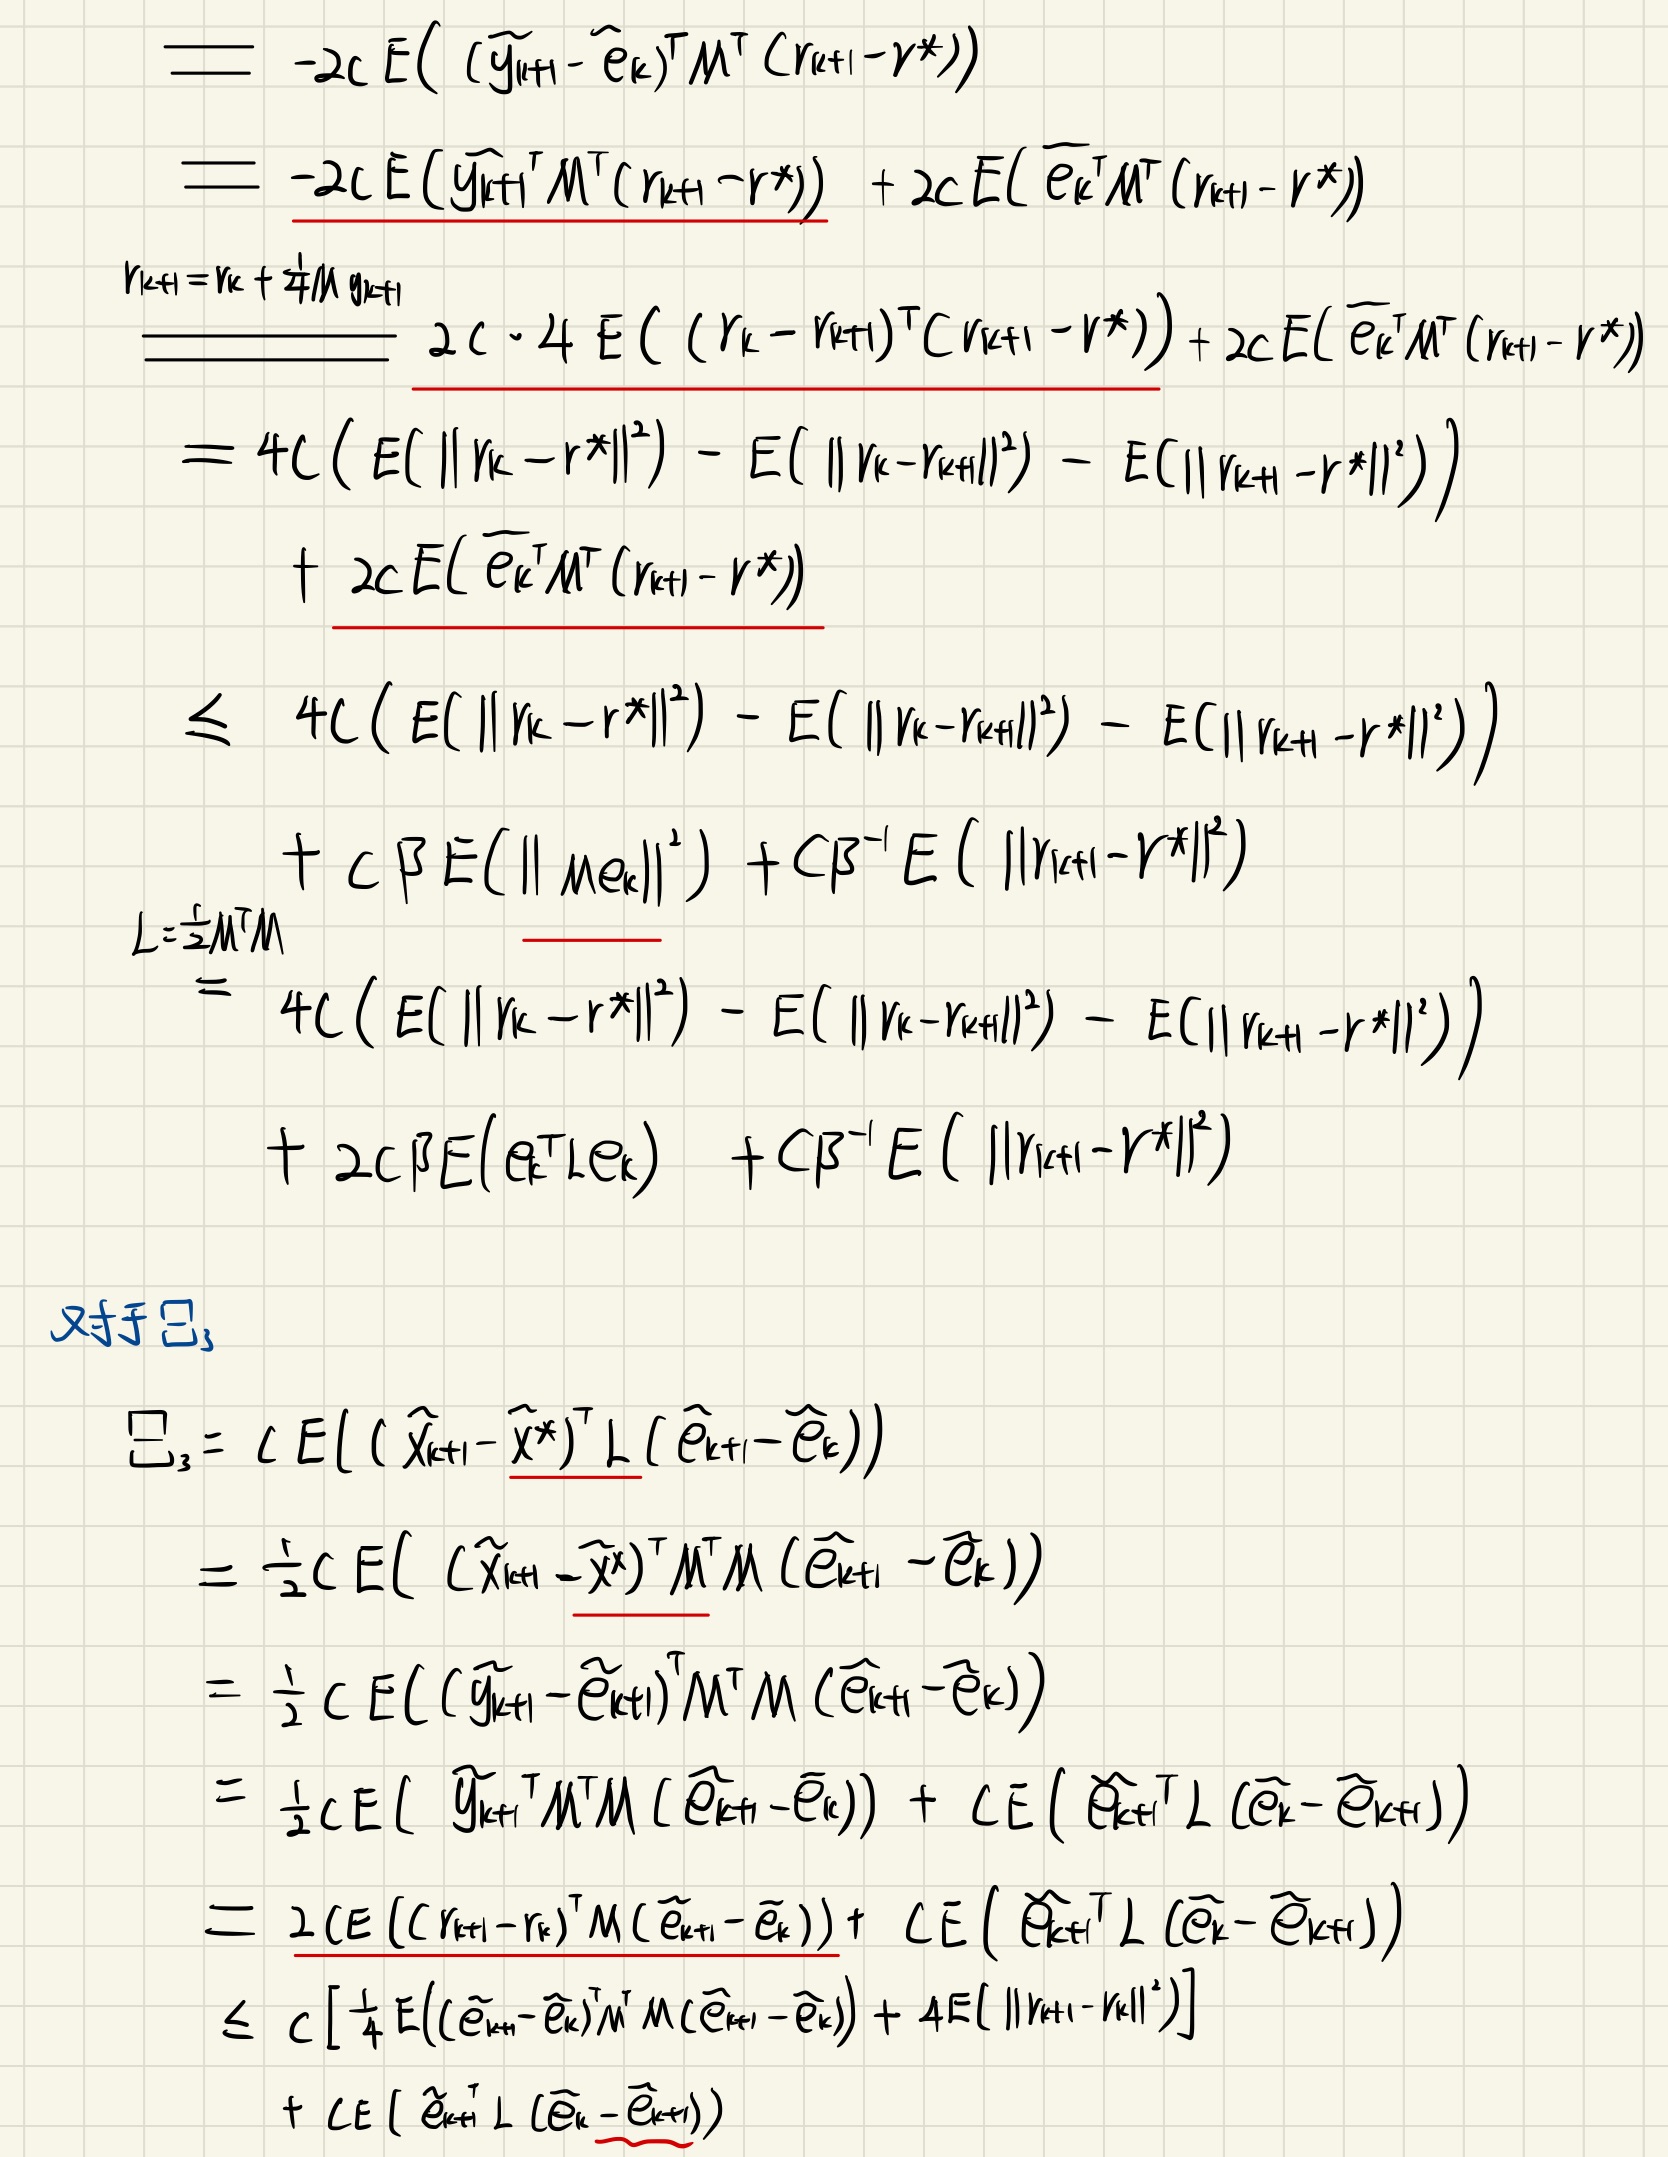 = -2c E( (ỹ_{k+1} - ẽ_k)^T M^T (r_{k+1} - r*))
= -2c E(ỹ_{k+1}^T M^T (r_{k+1} - r*)) + 2c E(ẽ_k^T M^T (r_{k+1} - r*))
r_{k+1} = r_k + 1/4 M y_{k+1}
= 2c · 4 E( (r_k - r_{k+1})^T (r_{k+1} - r*)) + 2c E(ẽ_k^T M^T (r_{k+1} - r*))
= 4c( E(||r_k - r*||²) - E(||r_k - r_{k+1}||²) - E(||r_{k+1} - r*||²))
+ 2c E(ẽ_k^T M^T (r_{k+1} - r*))
≤ 4c( E(||r_k - r*||²) - E(||r_k - r_{k+1}||²) - E(||r_{k+1} - r*||²))
+ cβ E(||M e_k||²) + cβ^{-1} E(||r_{k+1} - r*||²)
L = 1/2 M^T M
= 4c( E(||r_k - r*||²) - E(||r_k - r_{k+1}||²) - E(||r_{k+1} - r*||²))
+ 2cβ E(e_k^T L e_k) + cβ^{-1} E(||r_{k+1} - r*||²)
对于 Ξ₃
Ξ₃ = c E( (x̃_{k+1} - x̃*)^T L (ẽ_{k+1} - ẽ_k))
= 1/2 c E( (x̃_{k+1} - x̃*)^T M^T M (ẽ_{k+1} - ẽ_k))
= 1/2 c E( (ỹ_{k+1} - ẽ_{k+1})^T M^T M (ẽ_{k+1} - ẽ_k))
= 1/2 c E( ỹ_{k+1}^T M^T M (ẽ_{k+1} - ẽ_k)) + c E( ẽ_{k+1}^T L (ẽ_k - ẽ_{k+1}))
= 2c E( (r_{k+1} - r_k)^T M (ẽ_{k+1} - ẽ_k)) + c E( ẽ_{k+1}^T L (ẽ_k - ẽ_{k+1}))
≤ c[ 1/4 E((ẽ_{k+1} - ẽ_k)^T M^T M (ẽ_{k+1} - ẽ_k)) + 4E(||r_{k+1} - r_k||²)]
+ c E( ẽ_{k+1}^T L (ẽ_k - ẽ_{k+1}))